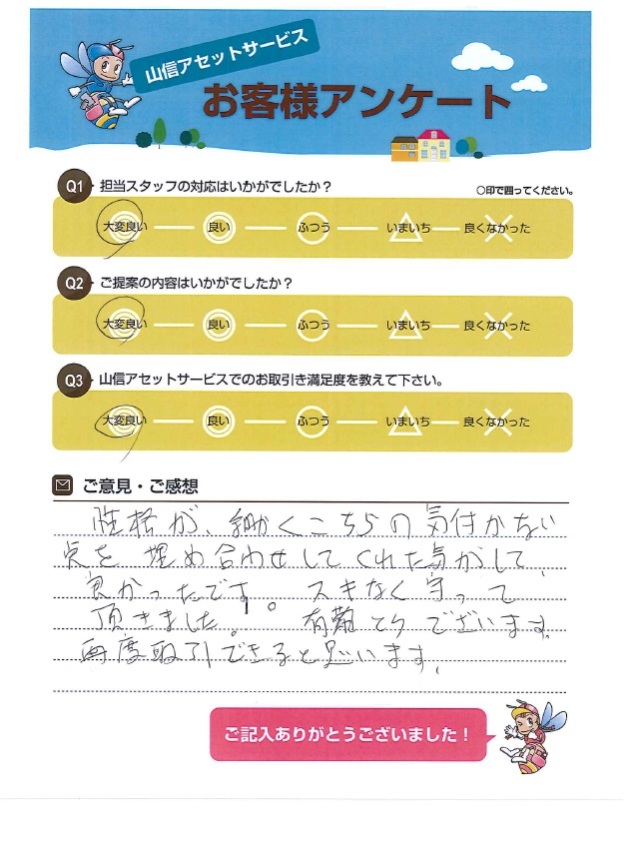 山信アセットサービス
お客様アンケート
Q1 担当スタッフの対応はいかがでしたか？
○印で囲ってください。
大変良い 良い ふつう いまいち 良くなかった
Q2 ご提案の内容はいかがでしたか？
大変良い 良い ふつう いまいち 良くなかった
Q3 山信アセットサービスでのお取引き満足度を教えて下さい。
大変良い 良い ふつう いまいち 良くなかった
ご意見・ご感想
性格が、細かくこちらの気付かない
点を埋め合わせしてくれた気がして、
良かったです。スキなく守って
頂きました。有難とうございます。
再度取引できると思います。
ご記入ありがとうございました！